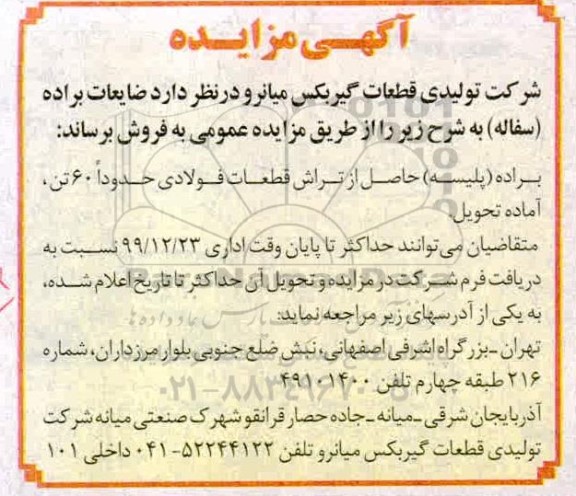 آگهی مزایده
شرکت تولیدی قطعات گیربکس میانرو درنظر دارد ضایعات براده
(سفاله) به شرح زیر را از طریق مزایده عمومی به فروش برساند:
براده (پلیسه) حاصل از تراش قطعات فولادی حدوداً ۶۰ تن،
آماده تحویل.
متقاضیان می‌توانند حداکثر تا پایان وقت اداری ۹۹/۱۲/۲۳ نسبت به
دریافت فرم شرکت در مزایده و تحویل آن حداکثر تا تاریخ اعلام شده،
به یکی از آدرسهای زیر مراجعه نماید:
تهران ـ بزرگراه اشرفی اصفهانی، نبش ضلع جنوبی بلوار مرزداران، شماره
۲۱۶ طبقه چهارم تلفن ۴۹۱۰۱۴۰۰
آذربایجان شرقی ـ میانه ـ جاده حصار قرانقو شهرک صنعتی میانه شرکت
تولیدی قطعات گیربکس میانرو تلفن ۵۲۲۴۴۱۲۲-۰۴۱ داخلی ۱۰۱
۰۲۱-۸۸۳۴۹۶۷۰